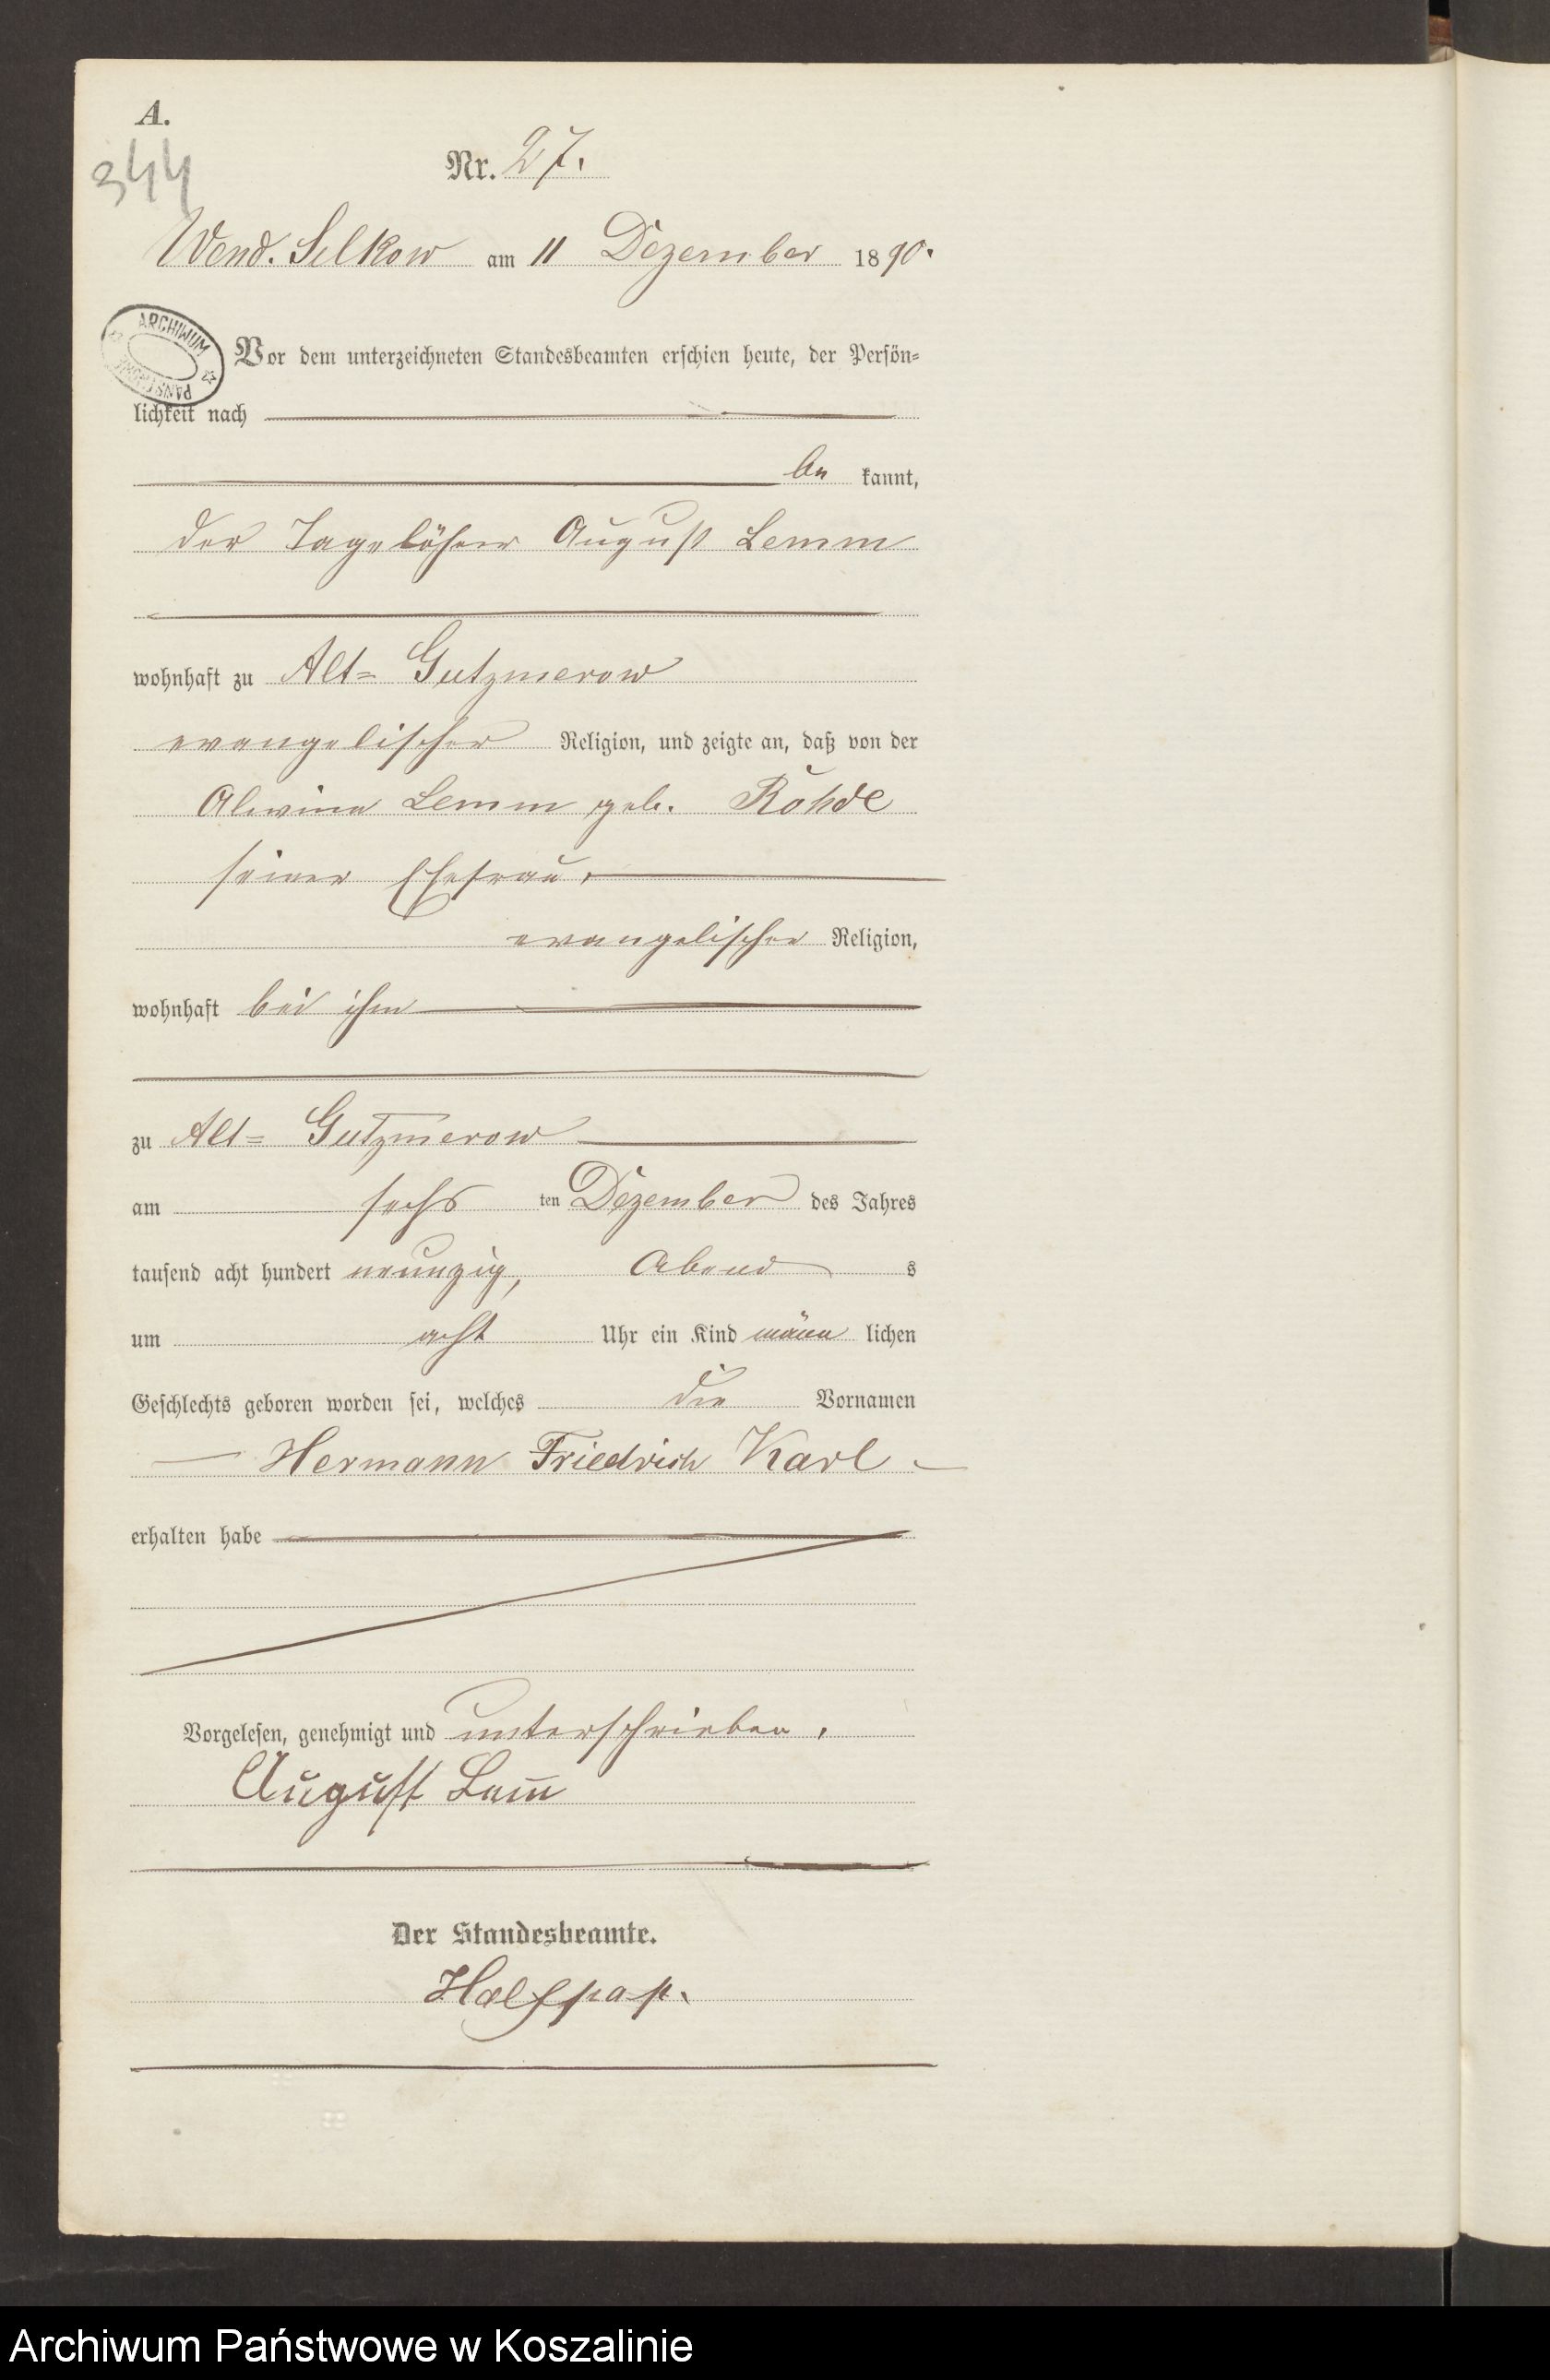 A.
344
Nr. 27.
Wend. Silkow am 11 Dezember 1890.
ARCHIWUM PAŃSTWOWE
Vor dem unterzeichneten Standesbeamten erschien heute, der Persön-
lichkeit nach
be kannt,
der Tagelöhner August Lemm
wohnhaft zu Alt- Gutzmerow
evangelischer Religion, und zeigte an, daß von der
Alwine Lemm geb. Rohde
seiner Ehefrau,
evangelischer Religion,
wohnhaft bei ihm
zu Alt- Gutzmerow
am sechs ten Dezember des Jahres
tausend acht hundert neunzig, Abend s
um acht Uhr ein Kind männ lichen
Geschlechts geboren worden sei, welches die Vornamen
Hermann Friedrich Karl
erhalten habe
Vorgelesen, genehmigt und unterschrieben.
August Lem̅
Der Standesbeamte.
Halfpap.
Archiwum Państwowe w Koszalinie